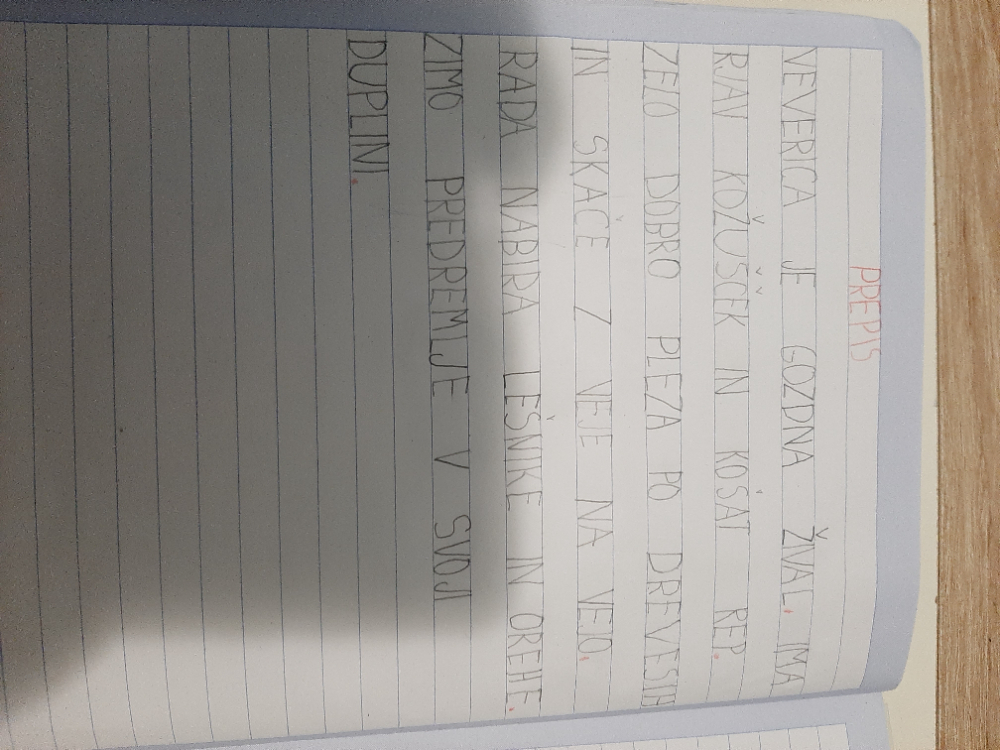 PREPIS
VEVERICA JE GOZDNA ŽIVAL. IMA
RJAV KOŽUŠČEK IN KOŠAT REP.
ZELO DOBRO PLEZA PO DREVESIH
IN SKAČE Z VEJE NA VEJO.
RADA NABIRA LEŠNIKE IN OREHE.
ZIMO PREDREMLJE V SVOJI
DUPLINI.